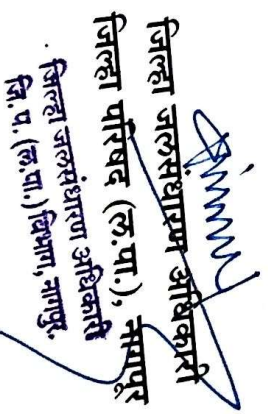 जिल्हा जलसंधारण अधिकारी
जिल्हा परिषद (ल.पा.), नागपूर
जिल्हा जलसंधारण अधिकारी
जि. प. (ल.पा.) विभाग, नागपूर.